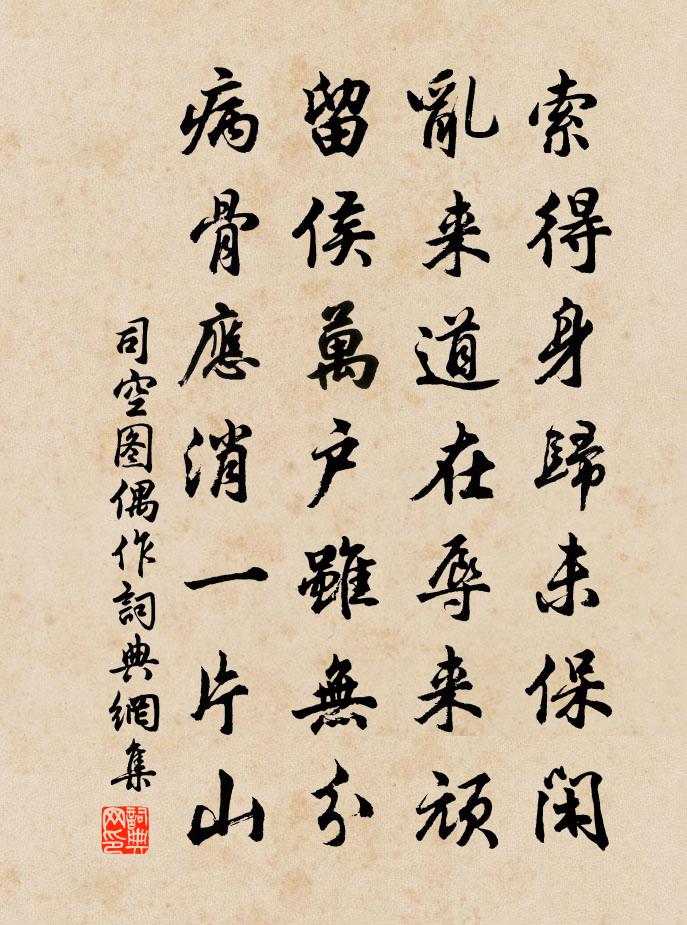 索得身歸未保閑
亂来道在辱来頑
留侯萬户雖無分
病骨應消一片山
司空图偶作詞典網集
詞典网印